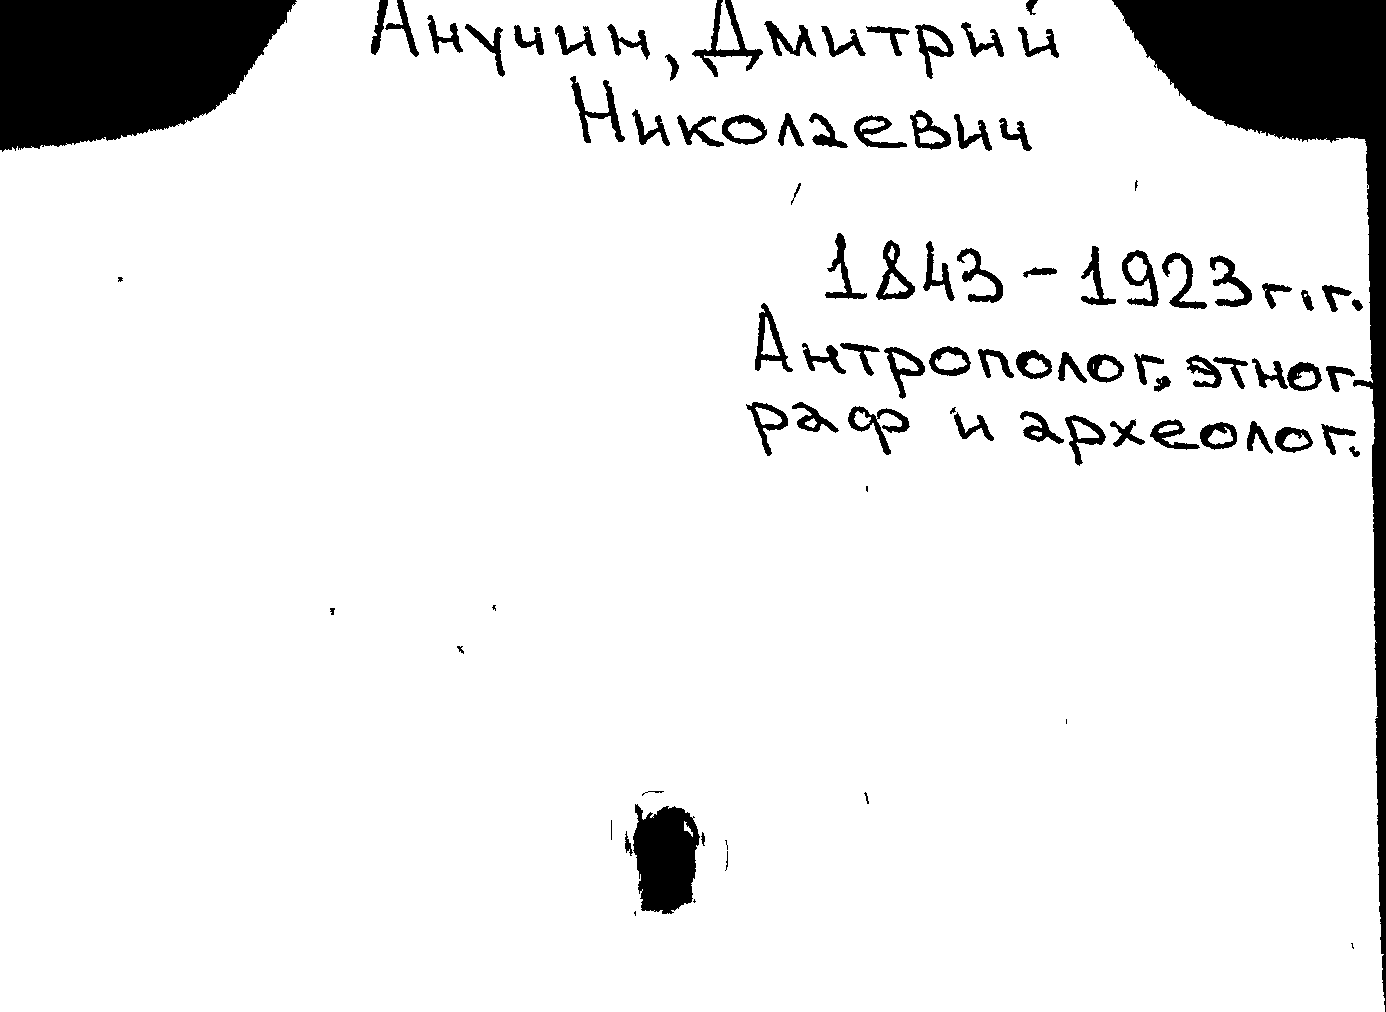 Анучин, Дмитрий
Николаевич
1843-1923г.г.
Антрополог, этног-
раф и археолог.